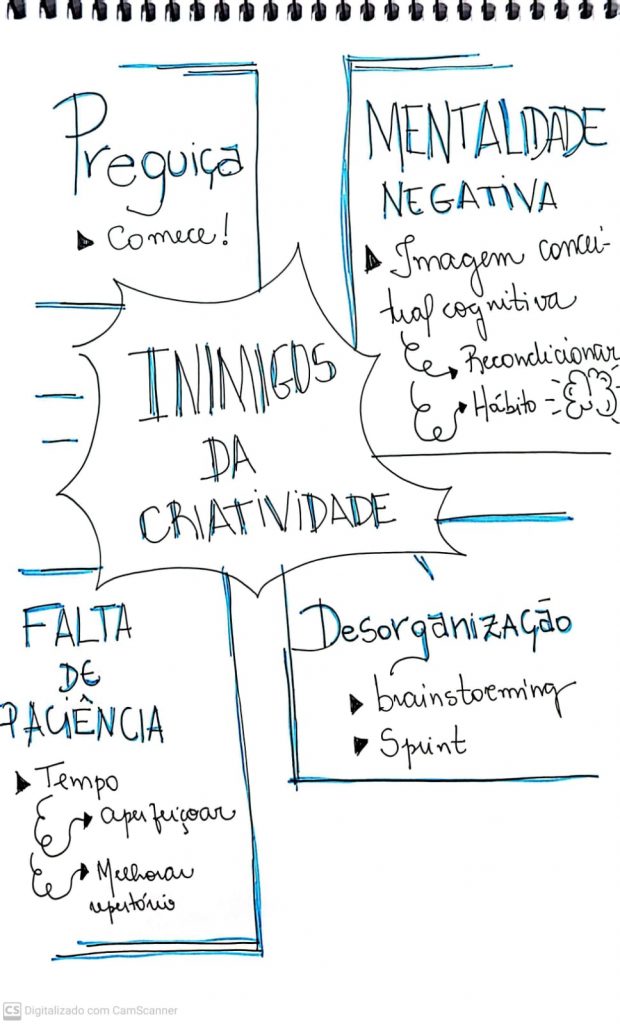 Preguiça
Comece!
MENTALIDADE
NEGATIVA
Imagem concei-
tual cognitiva
Recondicionar
Hábito -
ININIGOS
DA
CRIATIVIDADE
FALTA
DE
PACIÊNCIA
Tempo
aperfeiçoar
Melhorar
repertório
Desorganização
brainstorming
Sprint
CS Digitalizado com CamScanner